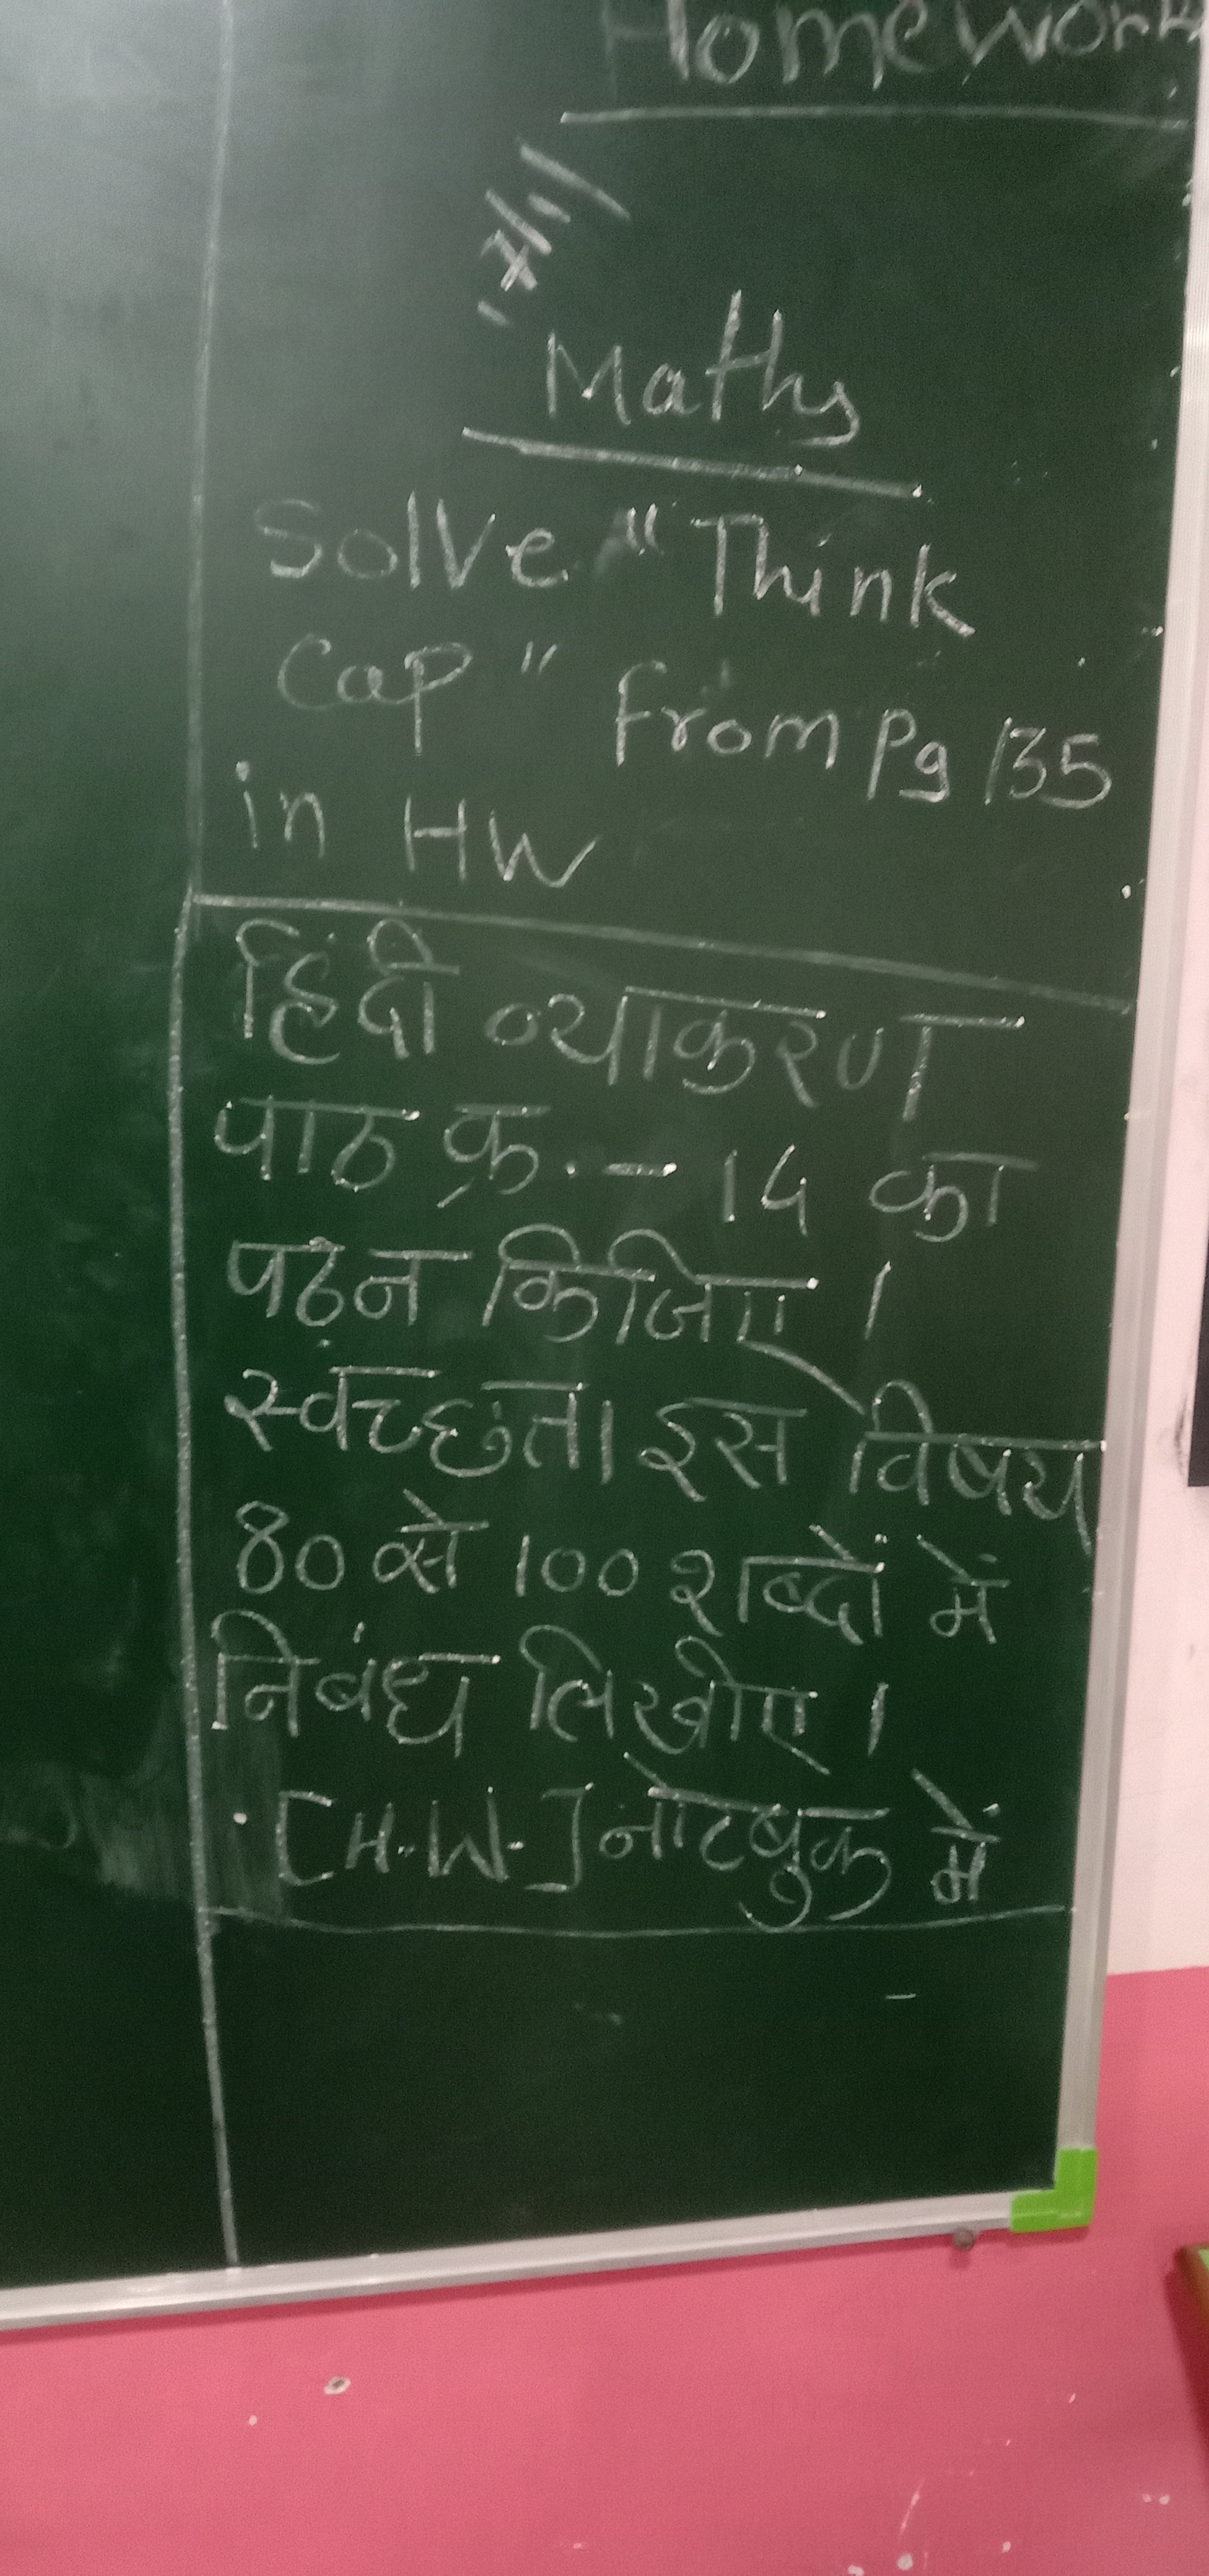 Homework
Maths
Solve "Think
Cap" from Pg 135
in HW
हिंदी व्याकरण
पाठ क्र.- 14 का
पढ़न किजिए ।
स्वच्छता इस विषय
80 से 100 शब्दों में
निबंध लिखीए ।
[H.W.] नोटबुक में